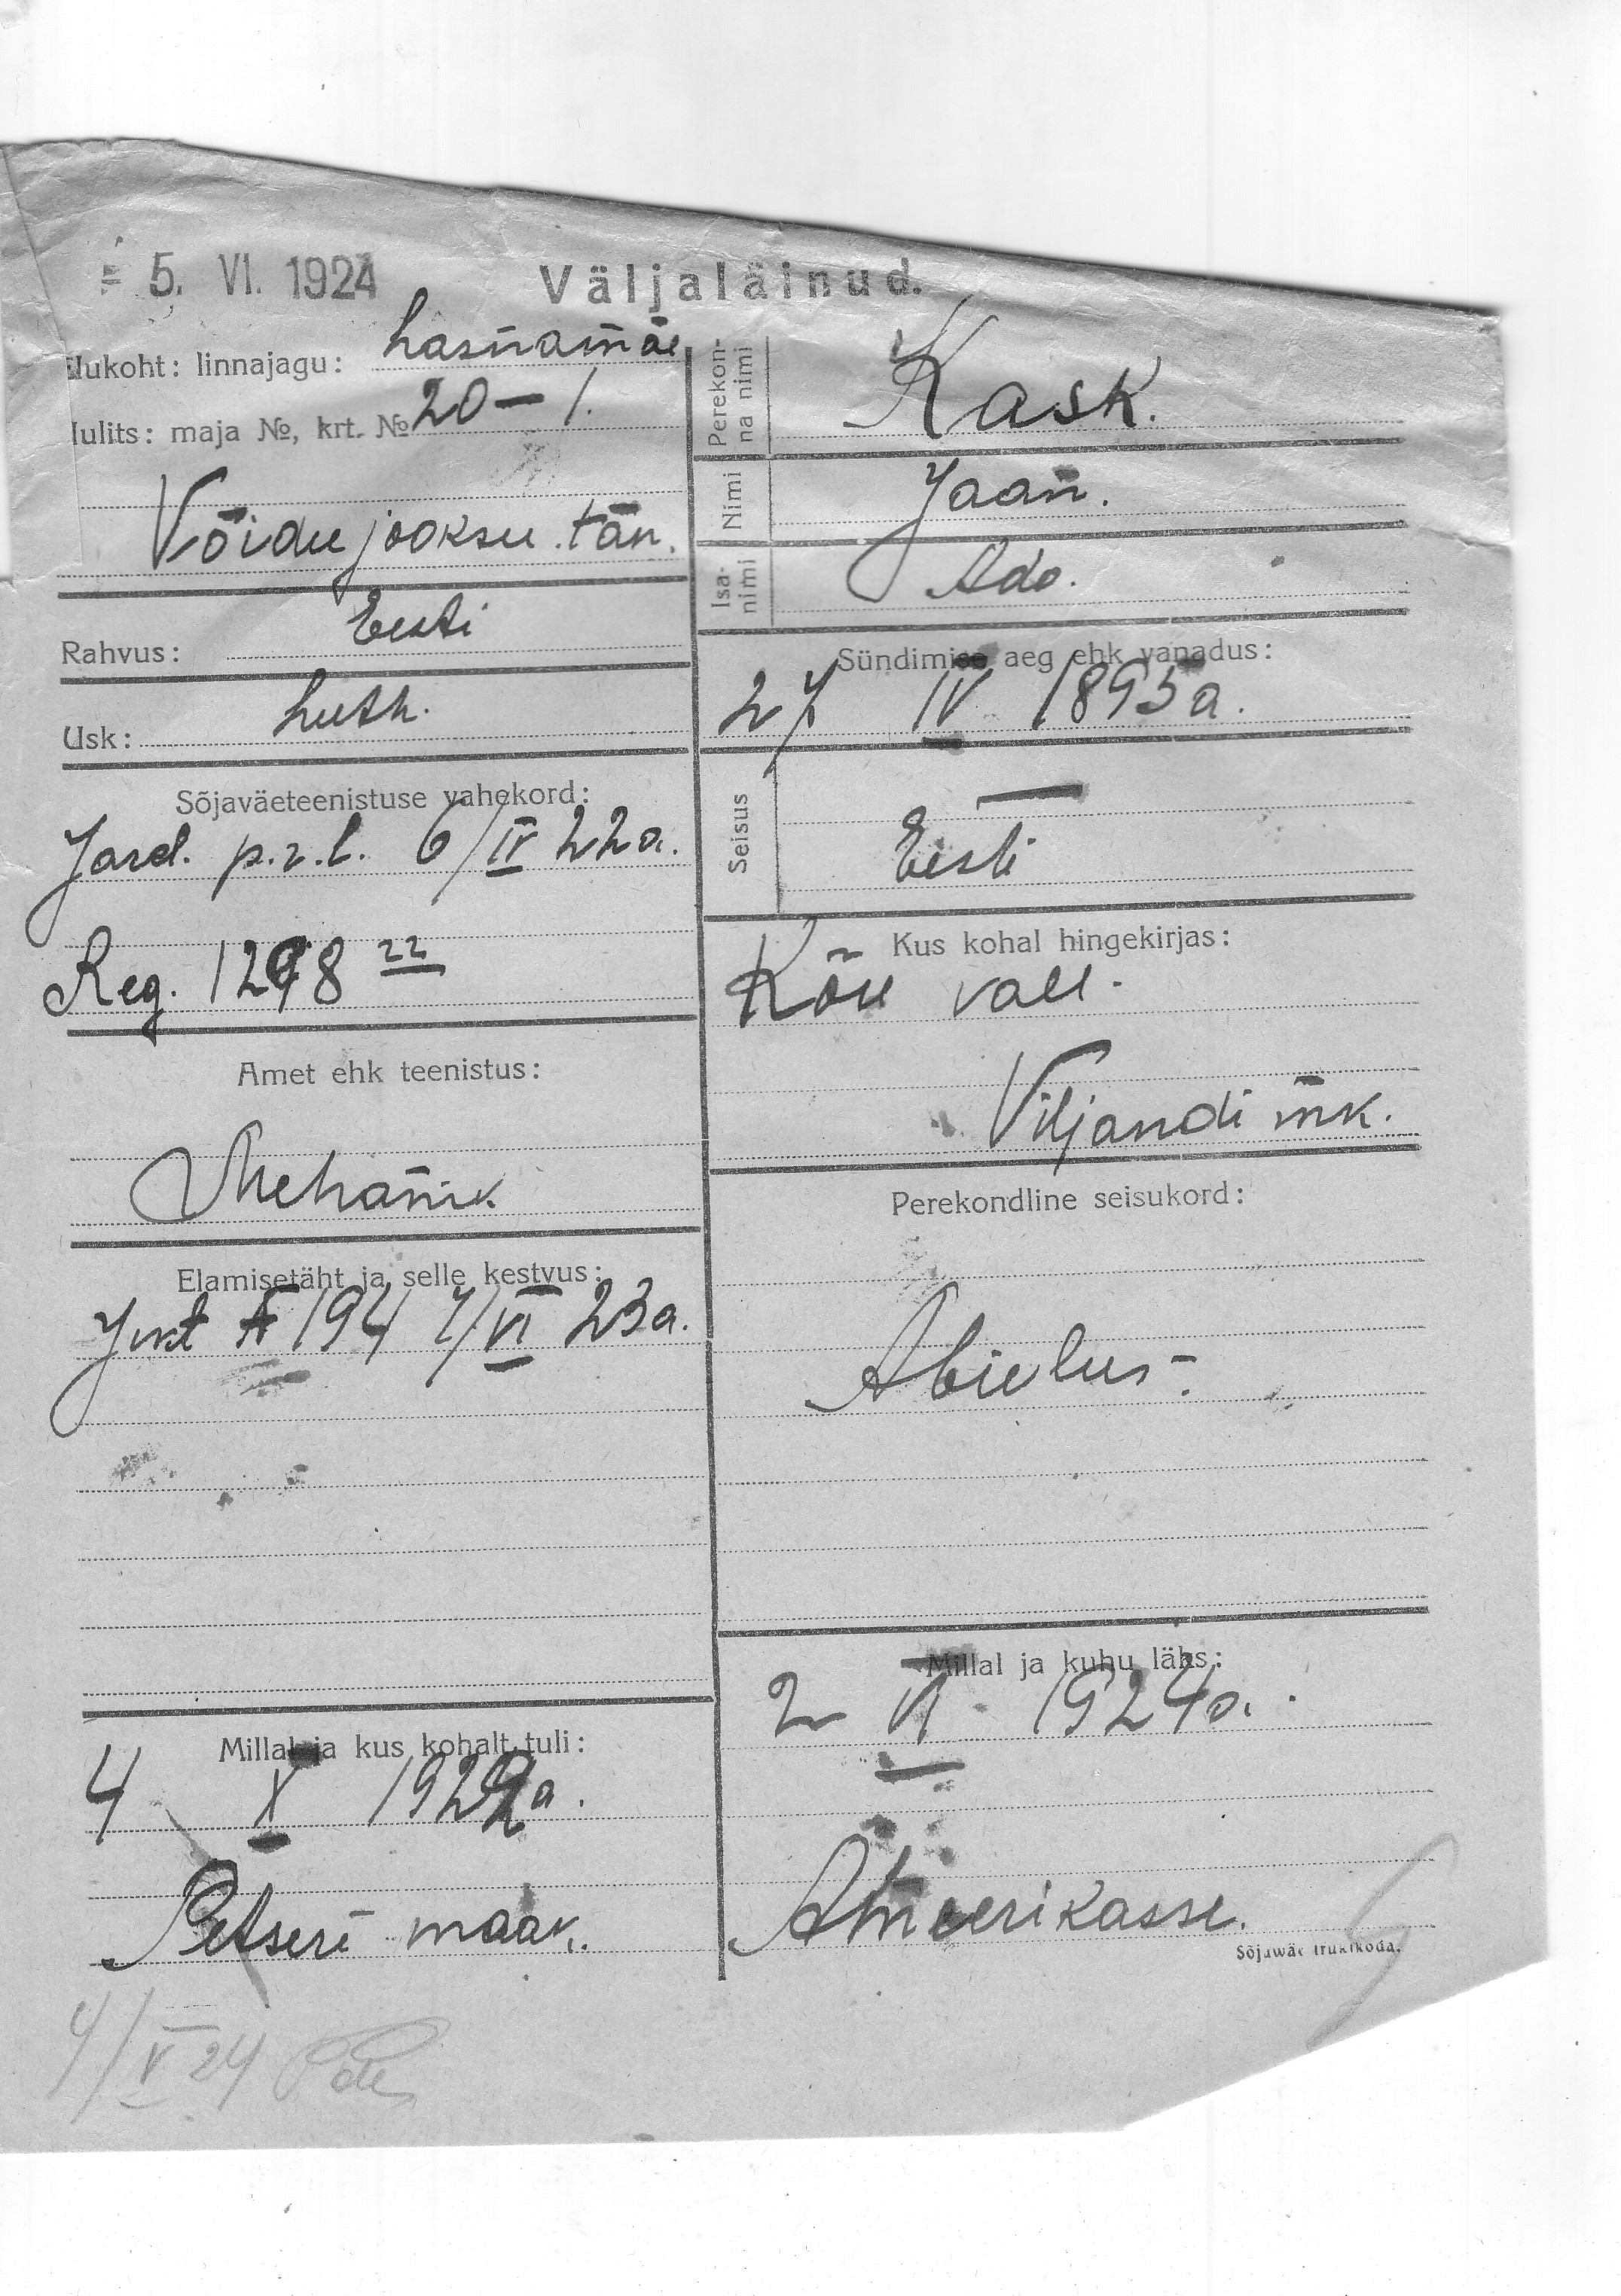 5. VI. 1924
Väljaläinud.
Elukoht: linnajagu: Lasnamäe
Uulits: maja №, krt. № 20 – 1.
Võidujooksu tän.
Rahvus: Eesti
Usk: Luth.
Sõjaväeteenistuse vahekord:
6/IV 22a.
Reg. 1298 22
Amet ehk teenistus:
Mehanik
Elamisetäht ja selle kestvus:
194 7/VI 23a.
Millal ja kus kohalt tuli:
4 X 1922a.
Petseri maak.
4/V 24
Perekonna nimi
Kask.
Nimi
Jaan.
Isanimi
Ado.
Sündimise aeg ehk vanadus:
27 IV 1895a.
Seisus
—
Eesti
Kus kohal hingekirjas:
Kõu vall.
Viljandi mk.
Perekondline seisukord:
Abielus.
Millal ja kuhu läks:
2 VI 1924a.
Ameerikasse.
Sõjawäe trükikoda.